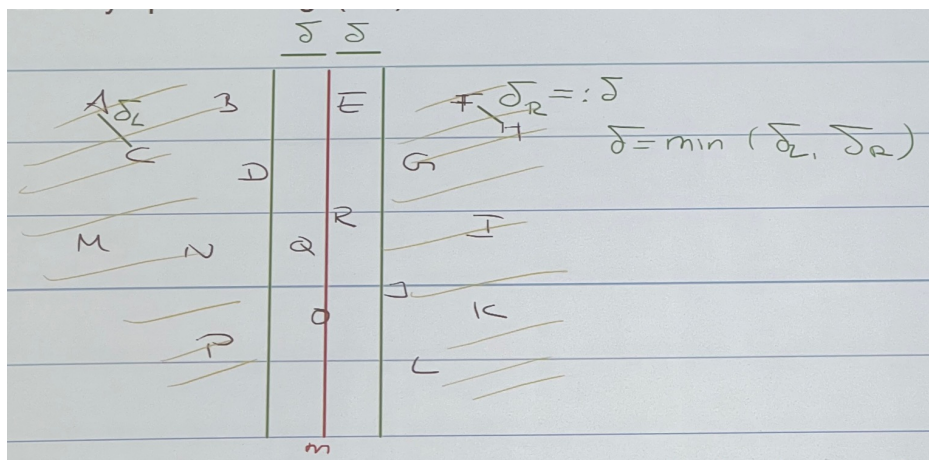 δ δ
A δ_L B E F δ_R =: δ
C H δ = min (δ_L, δ_R)
D G
R
M N Q I
J
O K
P L
m